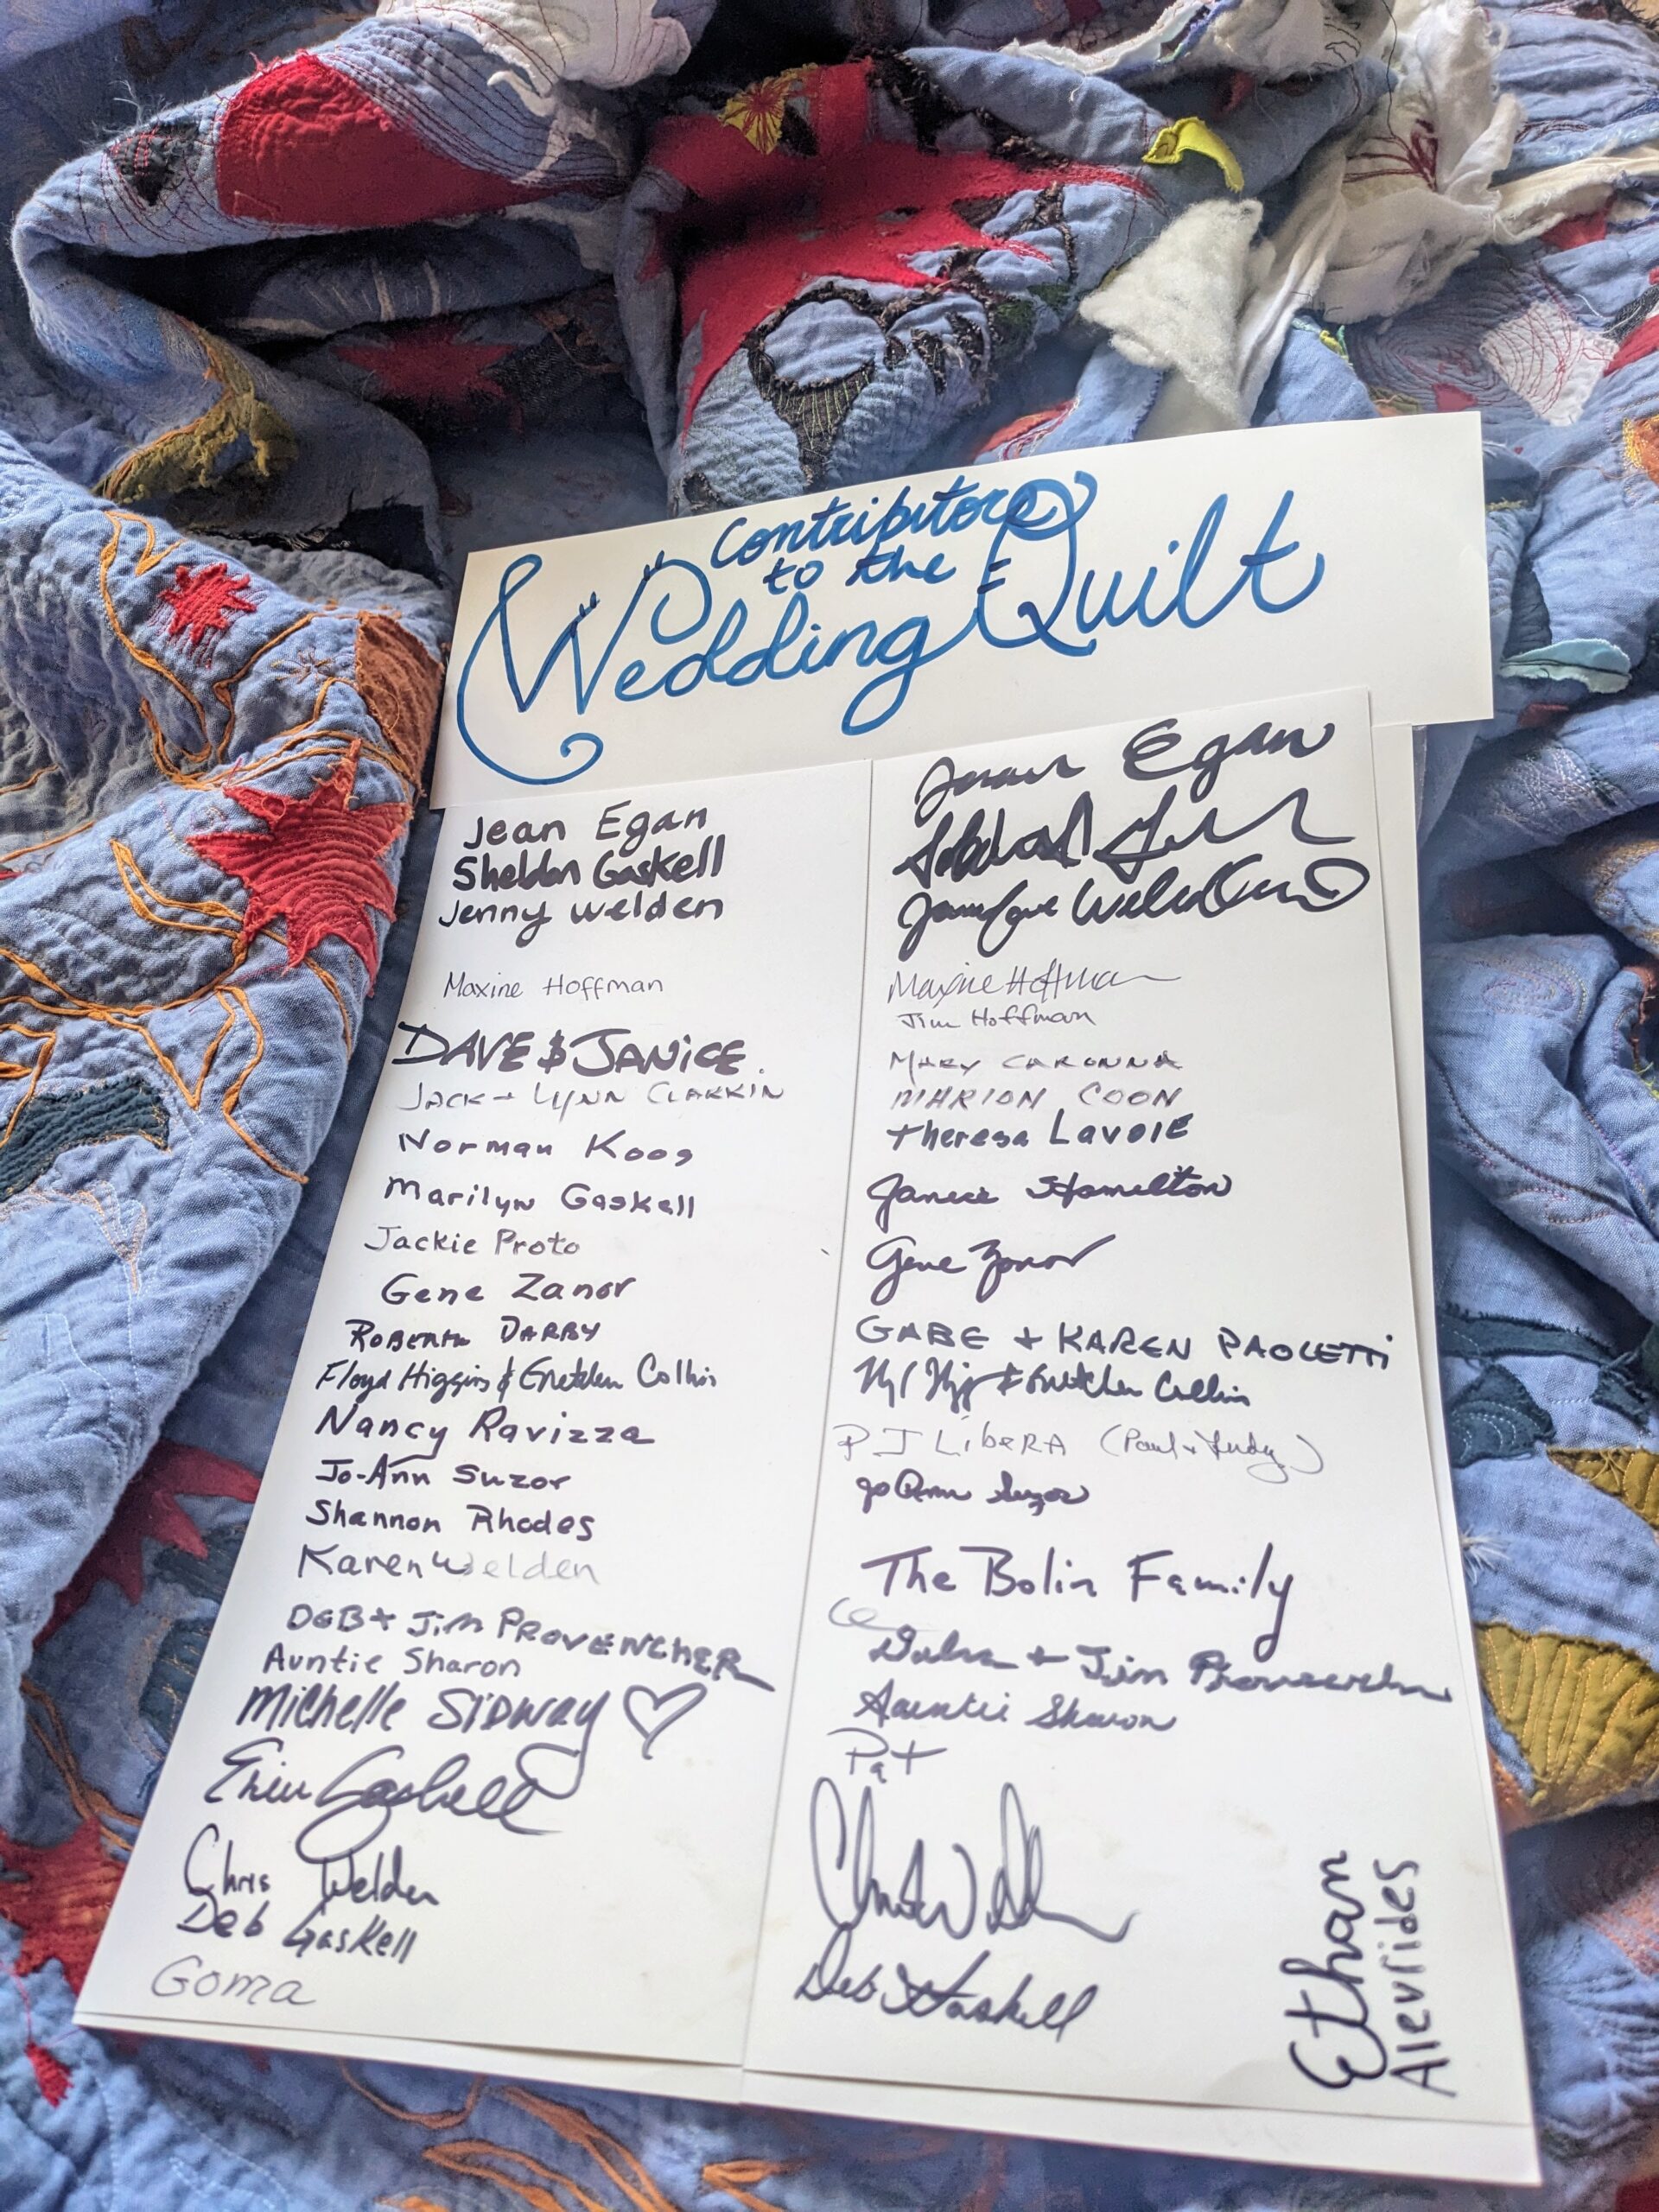 Contributors
to the
Wedding Quilt
Jean Egan
Sheldon Gaskell
Jenny Welden
Maxine Hoffman
DAVE & JANICE
JACK + LYNN CLARKIN
Norman Koos
Marilyn Gaskell
Jackie Proto
Gene Zanor
ROBERTA DARBY
Floyd Higgins & Gretchen Collins
Nancy Ravizza
Jo-Ann Suzor
Shannon Rhodes
Karen Welden
DEB + Jim PROVENCHER
Auntie Sharon
Michelle Sidway
Erin Gaskell
Chris Welden
Deb Gaskell
Goma
Egan
Welden
Maxine Hoffman
Jim Hoffman
MARY CARONNA
MARION COON
Theresa LAVOIE
Janice Hamilton
Gene Zanor
GABE + KAREN PAOLETTI
& Gretchen Collins
P J LIBERA (Paul + Judy)
JoAnn Suzor
The Bolin Family
+ Jim Provencher
Auntie Sharon
Pat
Chris Welden
Deb Gaskell
Ethan
Alevrides